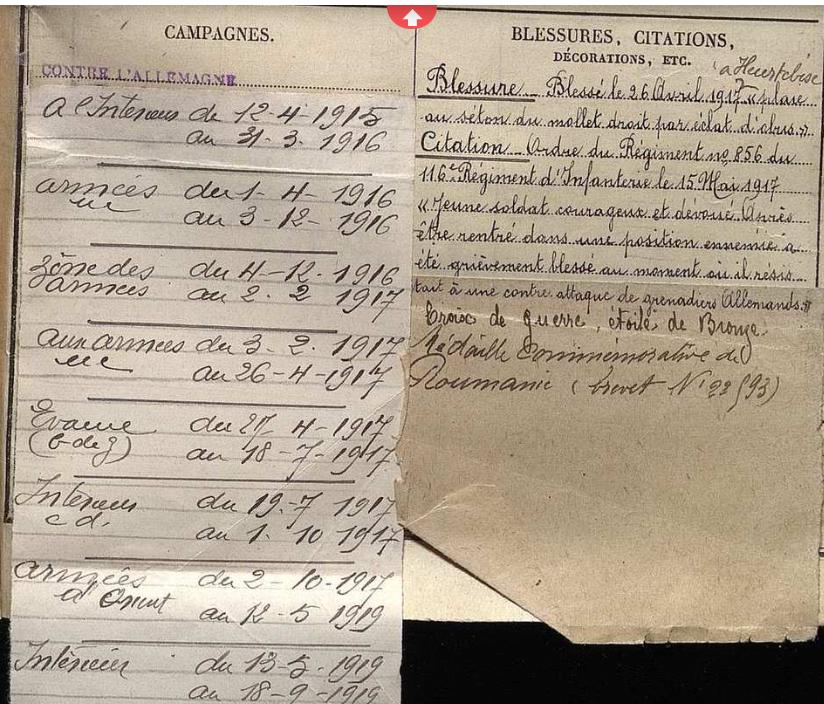 CAMPAGNES.
CONTRE L'ALLEMAGNE
a l'Interieur de 12-4-1915
au 31-3.1916
armées du 1-4-1916
au 3-12-1916
zône des du 4-12-1916
armées au 2.2 1917
aux armées du 3-2.1917
au 26-4-1917
Evacué du 27 4-1917
(b de g) au 18-7-1917
Interieur du 19.7 1917
c d. au 1.10 1917
armées du 2-10-1917
d'Orient au 12-5 1919
Intérieur du 13-5-1919
au 18-9-1919
BLESSURES, CITATIONS,
DÉCORATIONS, ETC.
à Heurtebise
Blessure _ Blessé le 26 Avril 1917 « plaie
au séton du mollet droit par éclat d'obus »
Citation _ Ordre du Régiment no 856 du
116e Régiment d'Infanterie le 15 Mai 1917
« Jeune soldat courageux et dévoué. Après
être rentré dans une position ennemie a
été grièvement blessé au moment où il résis-
tait à une contre attaque de grenadiers Allemands. »
Croix de guerre, étoile de Bronze.
Médaille Commémorative de
Roumanie (brevet N°